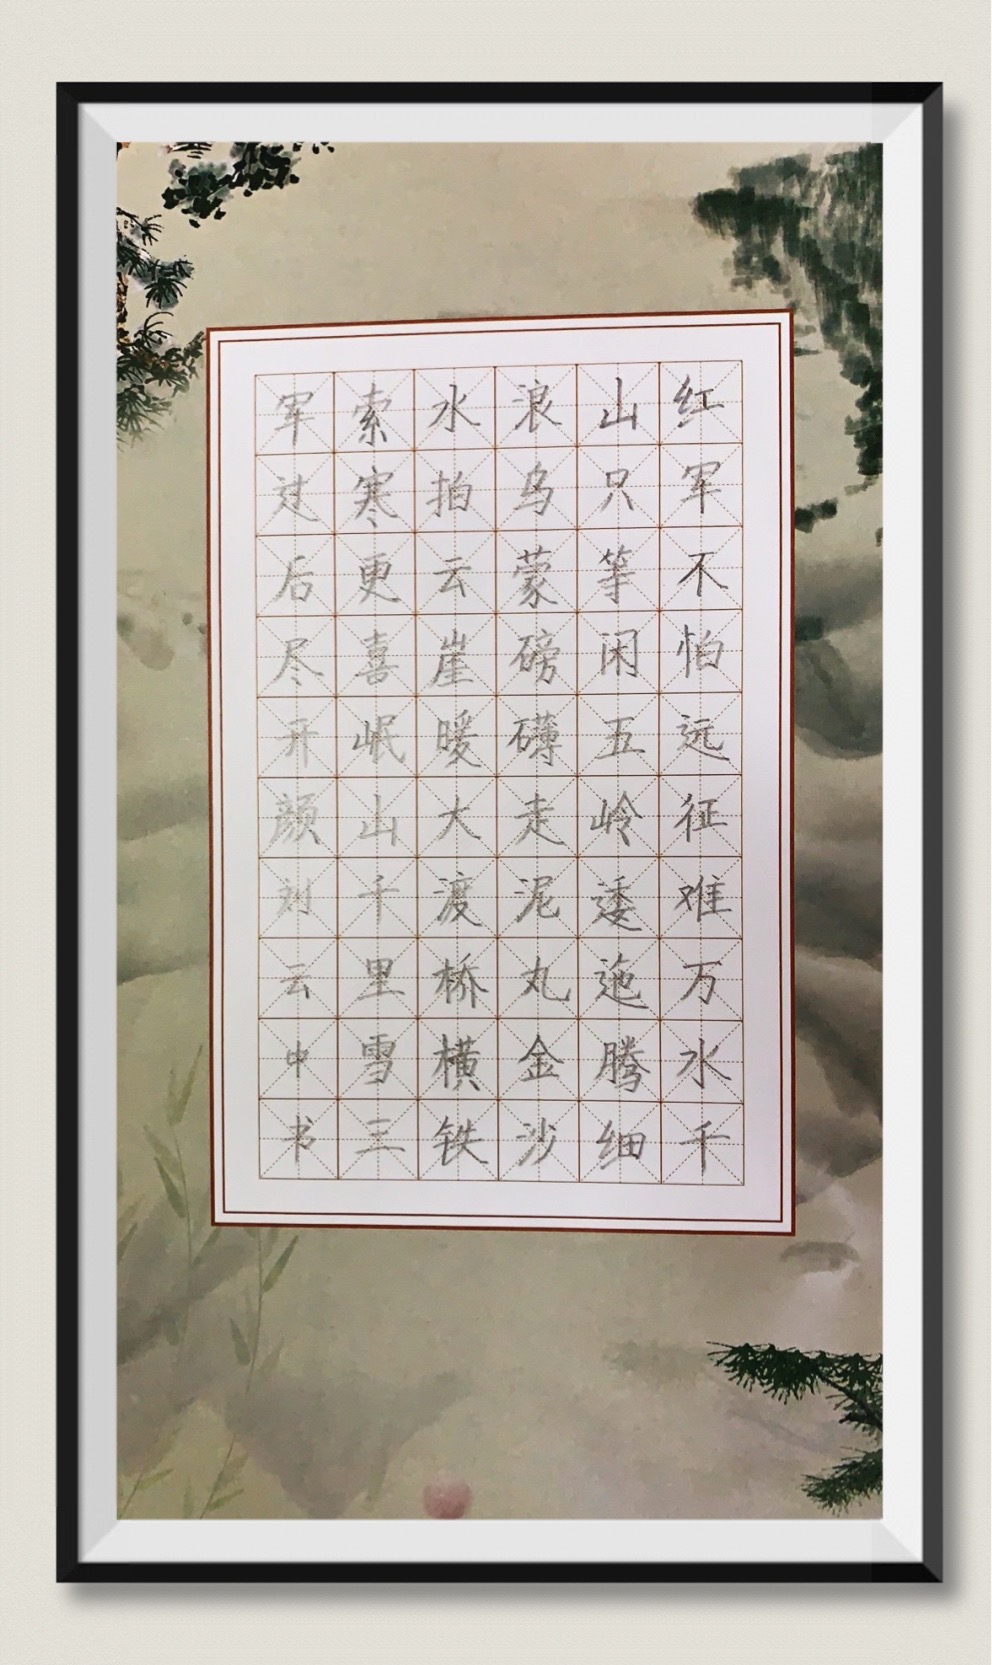 红军不怕远征难万水千
山只等闲五岭逶迤腾细
浪乌蒙磅礴走泥丸金沙
水拍云崖暖大渡桥横铁
索寒更喜岷山千里雪三
军过后尽开颜刘云中书